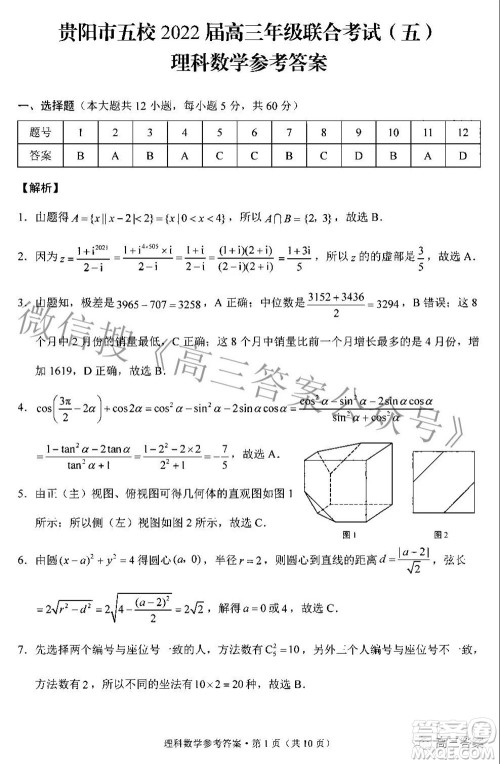 贵阳市五校 2022 届高三年级联合考试（五）
理科数学参考答案
一、选择题（本大题共 12 小题，每小题 5 分，共 60 分）
题号 1 2 3 4 5 6 7 8 9 10 11 12
答案 B A B A C C B D A D D A
【解析】
1．由题得 A={x||x−2|<2}={x|0<x<4}，所以 A∩B={2, 3}，故选 B．
2．因为 z=(1+i^2021)/(2−i)=(1+i^(4×505)×i)/(2−i)=(1+i)/(2−i)=(1+i)(2+i)/((2−i)(2+i))=(1+3i)/5，所以 z 的的虚部是 3/5，故选 A．
3．由题知，极差是 3965−707=3258，A 正确；中位数是 (3152+3436)/2=3294，B 错误；这 8
个月中 2 月份的销量最低，C 正确；这 8 个月中销量比前一个月增长最多的是 4 月份，增
加 1619，D 正确，故选 B．
4．cos(3π/2−2α)+cos2α=cos²α−sin²α−2sinαcosα=(cos²α−sin²α−2sinαcosα)/(sin²α+cos²α)
=(1−tan²α−2tanα)/(tan²α+1)=(1−2²−2×2)/(2²+1)=−7/5，故选 A．
5．由正（主）视图、俯视图可得几何体的直观图如图 1
所示；所以侧（左）视图如图 2 所示，故选 C．
图 1 图 2
6．由圆(x−a)²+y²=4 得圆心(a, 0)，半径 r=2，则圆心到直线的距离 d=|a−2|/√2，弦长
=2√(r²−d²)=2√(4−(a−2)²/2)=2√2，解得 a=0或4，故选 C．
7．先选择两个编号与座位号一致的人，方法数有C₅²=10，另外三个人编号与座位号不一致，
方法数有 2，所以不同的坐法有 10×2=20种，故选 B．
理科数学参考答案·第 1 页（共 10 页）
微信搜《高三答案公众号》
高三答案